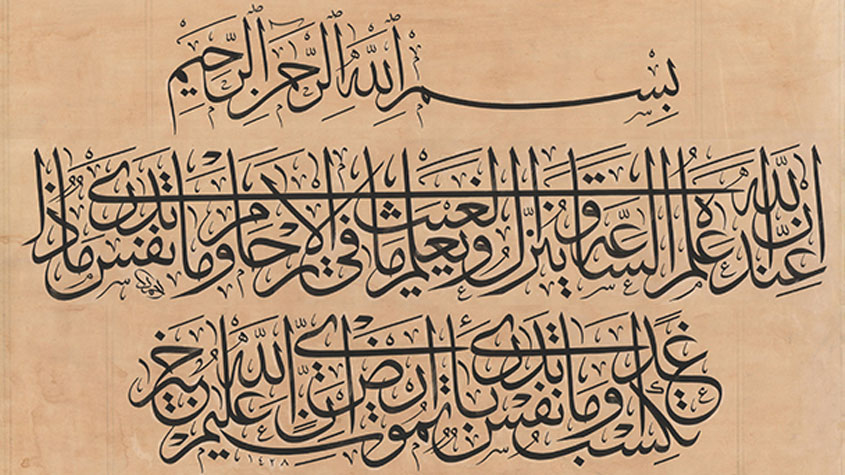 بِسْمِ اللهِ الرَّحْمٰنِ الرَّحِيمِ
اِنَّ اللهَ عِنْدَهُ عِلْمُ السَّاعَةِ وَيُنَزِّلُ الْغَيْثَ وَيَعْلَمُ مَا فِي الْاَرْحَامِ وَمَا تَدْرِى نَفْسٌ مَاذَا
تَكْسِبُ غَدًا وَمَا تَدْرِى نَفْسٌ بِأَىِّ اَرْضٍ تَمُوتُ اِنَّ اللهَ عَلِيمٌ خَبِيرٌ
١٤٢٨